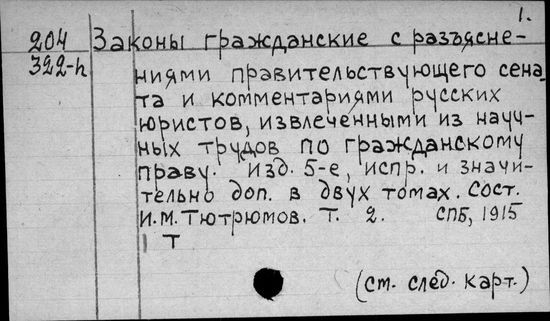 1.
204 Законы гражданские с разъясне-
322-h ниями правительствующего сена-
та и комментариями русских
юристов, извлеченными из науч-
ных трудов по гражданскому
праву. Изд. 5-е, испр. и значи-
тельно доп. в двух томах. Сост.
И.М. Тютрюмов. Т. 2. СПБ, 1915
Т
(см. след. карт.)